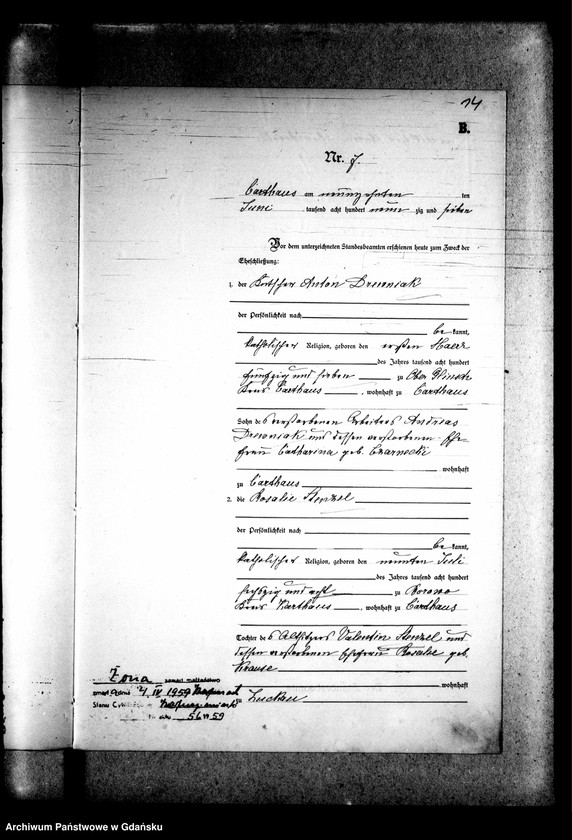 14
B.
Nr. 7.
Carthaus am neunzehnten ten
Juni tausend acht hundert neun zig und sieben
Vor dem unterzeichneten Standesbeamten erschienen heute zum Zweck der
Eheschließung:
1. der Kutscher Anton Drewniak
der Persönlichkeit nach
be kannt,
katholischer Religion, geboren den ersten Maerz
des Jahres tausend acht hundert
fünfzig und sieben zu Ober
Kreis Carthaus, wohnhaft zu Carthaus
Sohn des verstorbenen Arbeiters Andreas
Drewniak und dessen verstorbenen Ehe-
frau Catharina geb. Czarnecki
wohnhaft
zu Carthaus
2. die Rosalie Stenzel
der Persönlichkeit nach
be kannt,
katholischer Religion, geboren den neunten Juli
des Jahres tausend acht hundert
sechszig und acht zu Borowo
Kreis Karthaus, wohnhaft zu Carthaus
Tochter des Altsitzers Valentin Stenzel und
dessen verstorbenen Ehefrau Rosalie geb.
Krause
wohnhaft
zu Zuckau
Żona
zmarł dnia 4 IV 1959
Stanu Cyw.
56/59
Archiwum Państwowe w Gdańsku